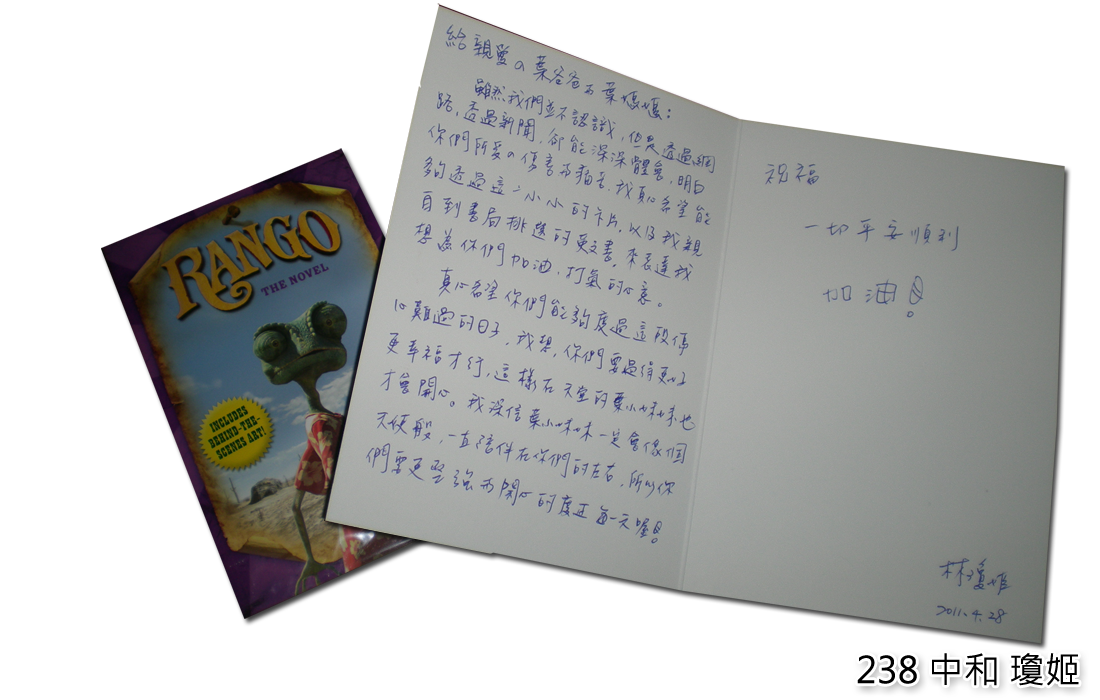 RANGO
THE NOVEL
INCLUDES
BEHIND-THE-
SCENES ART!
給親愛の葉爸爸和葉媽媽：
雖然我們並不認識，但是透過網
路，透過新聞，卻能深深體會，明白
你們所受の傷害和痛苦，我真心希望能
夠透過這一小小的卡片，以及我親
自到書局挑選的英文書，來表達我
想為你們加油、打氣的心意。
真心希望你們能夠度過這段傷
心難過的日子，我想，你們要過得更好
更幸福才行，這樣在天堂的葉小妹妹也
才會開心。我深信葉小妹妹一定會像個
天使般，一直陪伴在你們的左右，所以你
們要更堅強而開心的度過每一天喔！
祝福
一切平安順利
加油！
林瓊姬
2011.4.28
238 中和 瓊姬